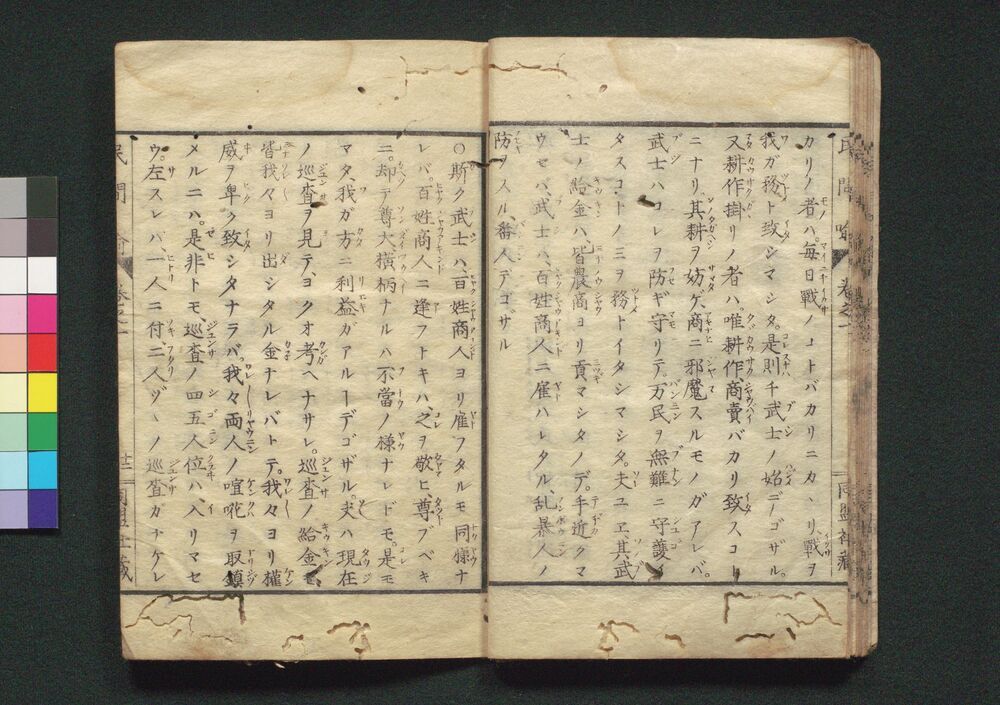 カリノ者ハ、毎日戰ノコトバカリニカヽリ、戰ヲ
我ガ務ト致シマシタ。是則チ武士ノ始デーゴザル。
又耕作掛リノ者ハ、唯耕作商賣バカリ致スコト
ニナリ。其耕ヲ妨ゲ、商ニ邪魔スルモノガアレバ。
武士ハコレヲ防ギ守リテ、万民ヲ無難ニ守護イ
タスコトノミヲ務トイタシマシタ。夫ユヱ、其武
士ノ給金ハ、皆農商ヨリ貢マシタノデ。手近クマ
ウセバ、武士ハ、百姓商人ニ雇ハレタル、乱暴人ノ
防ヲスル、番人デゴザル
○斯ク武士ハ、百姓商人ヨリ雇フタルモ同樣ナ
レバ。百姓商人ニ逢フトキハ、之ヲ敬ヒ尊ブベキ
ニ。却テ尊大、横柄ナルハ不當ノ樣ナレドモ。是モ
マタ、我ガ方ニ利益ガアルーデゴザル。夫ハ現在
ノ巡査ヲ見テ、ヨクオ考ヘナサレ。巡査ノ給金モ、
皆我々ヨリ出シタル金ナレバトテ。我々ヨリ權
威ヲ卑ク致シタナラバ。我々両人ノ喧𠵅ヲ取鎮
メルニハ。是非トモ、巡査ノ四五人位ハ、入リマセ
ウ。左スレバ、一人ニ付、二人ヅヽノ巡査ガナケレ
民間 卷之一